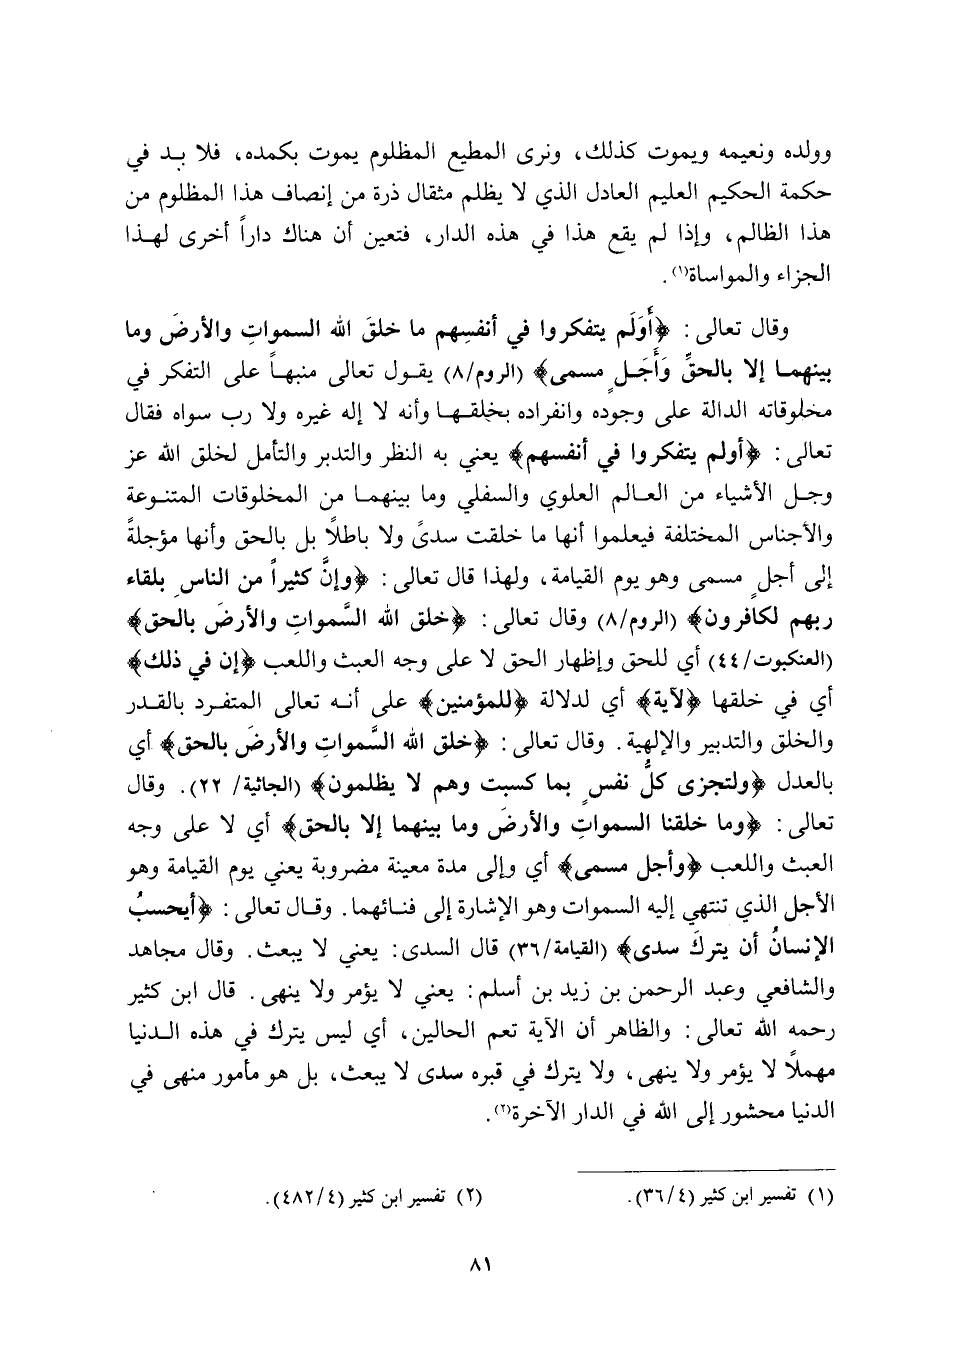 وولده ونعيمه ويموت كذلك، ونرى المطيع المظلوم يموت بكمده، فلا بد في
حكمة الحكيم العليم العادل الذي لا يظلم مثقال ذرة من إنصاف هذا المظلوم من
هذا الظالم، وإذا لم يقع هذا في هذه الدار، فتعين أن هناك داراً أخرى لهذا
الجزاء والمواساة(١).
وقال تعالى: ﴿أَوَلَم يتفكروا في أنفسِهم ما خلقَ الله السمواتِ والأرضَ وما
بينهما إلا بالحقِّ وَأَجَلٍ مسمى﴾ (الروم/٨) يقول تعالى منبهاً على التفكر في
مخلوقاته الدالة على وجوده وانفراده بخلقها وأنه لا إله غيره ولا رب سواه فقال
تعالى: ﴿أولم يتفكروا في أنفسهم﴾ يعني به النظر والتدبر والتأمل لخلق الله عز
وجل الأشياء من العالم العلوي والسفلي وما بينهما من المخلوقات المتنوعة
والأجناس المختلفة فيعلموا أنها ما خلقت سدىً ولا باطلاً بل بالحق وأنها مؤجلةً
إلى أجلٍ مسمى وهو يوم القيامة، ولهذا قال تعالى: ﴿وإنَّ كثيراً من الناسِ بلقاء
ربهم لكافرون﴾ (الروم/٨) وقال تعالى: ﴿خلق الله السَّمواتِ والأرضَ بالحق﴾
(العنكبوت/٤٤) أي للحق وإظهار الحق لا على وجه العبث واللعب ﴿إن في ذلك﴾
أي في خلقها ﴿لآية﴾ أي لدلالة ﴿للمؤمنين﴾ على أنه تعالى المتفرد بالقدر
والخلق والتدبير والإلهية. وقال تعالى: ﴿خلق الله السَّمواتِ والأرضَ بالحق﴾ أي
بالعدل ﴿ولتجزى كلُّ نفسٍ بما كسبت وهم لا يظلمون﴾ (الجاثية/ ٢٢). وقال
تعالى: ﴿وما خلقنا السمواتِ والأرضَ وما بينهما إلا بالحق﴾ أي لا على وجه
العبث واللعب ﴿وأجل مسمى﴾ أي وإلى مدة معينة مضروبة يعني يوم القيامة وهو
الأجل الذي تنتهي إليه السموات وهو الإشارة إلى فنائهما. وقال تعالى: ﴿أيحسبُ
الإنسانُ أن يتركَ سدى﴾ (القيامة/٣٦) قال السدى: يعني لا يبعث. وقال مجاهد
والشافعي وعبد الرحمن بن زيد بن أسلم: يعني لا يؤمر ولا ينهى. قال ابن كثير
رحمه الله تعالى: والظاهر أن الآية تعم الحالين، أي ليس يترك في هذه الدنيا
مهملاً لا يؤمر ولا ينهى، ولا يترك في قبره سدى لا يبعث، بل هو مأمور منهى في
الدنيا محشور إلى الله في الدار الآخرة(٢).
(١) تفسير ابن كثير (٣٦/٤).
(٢) تفسير ابن كثير (٤٨٢/٤).
٨١